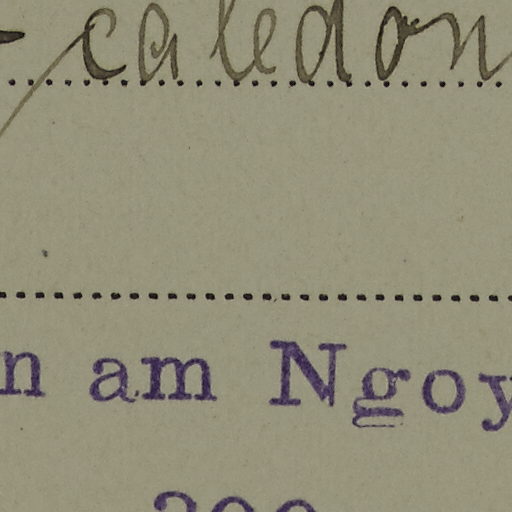 -caledon
n am Ngoy